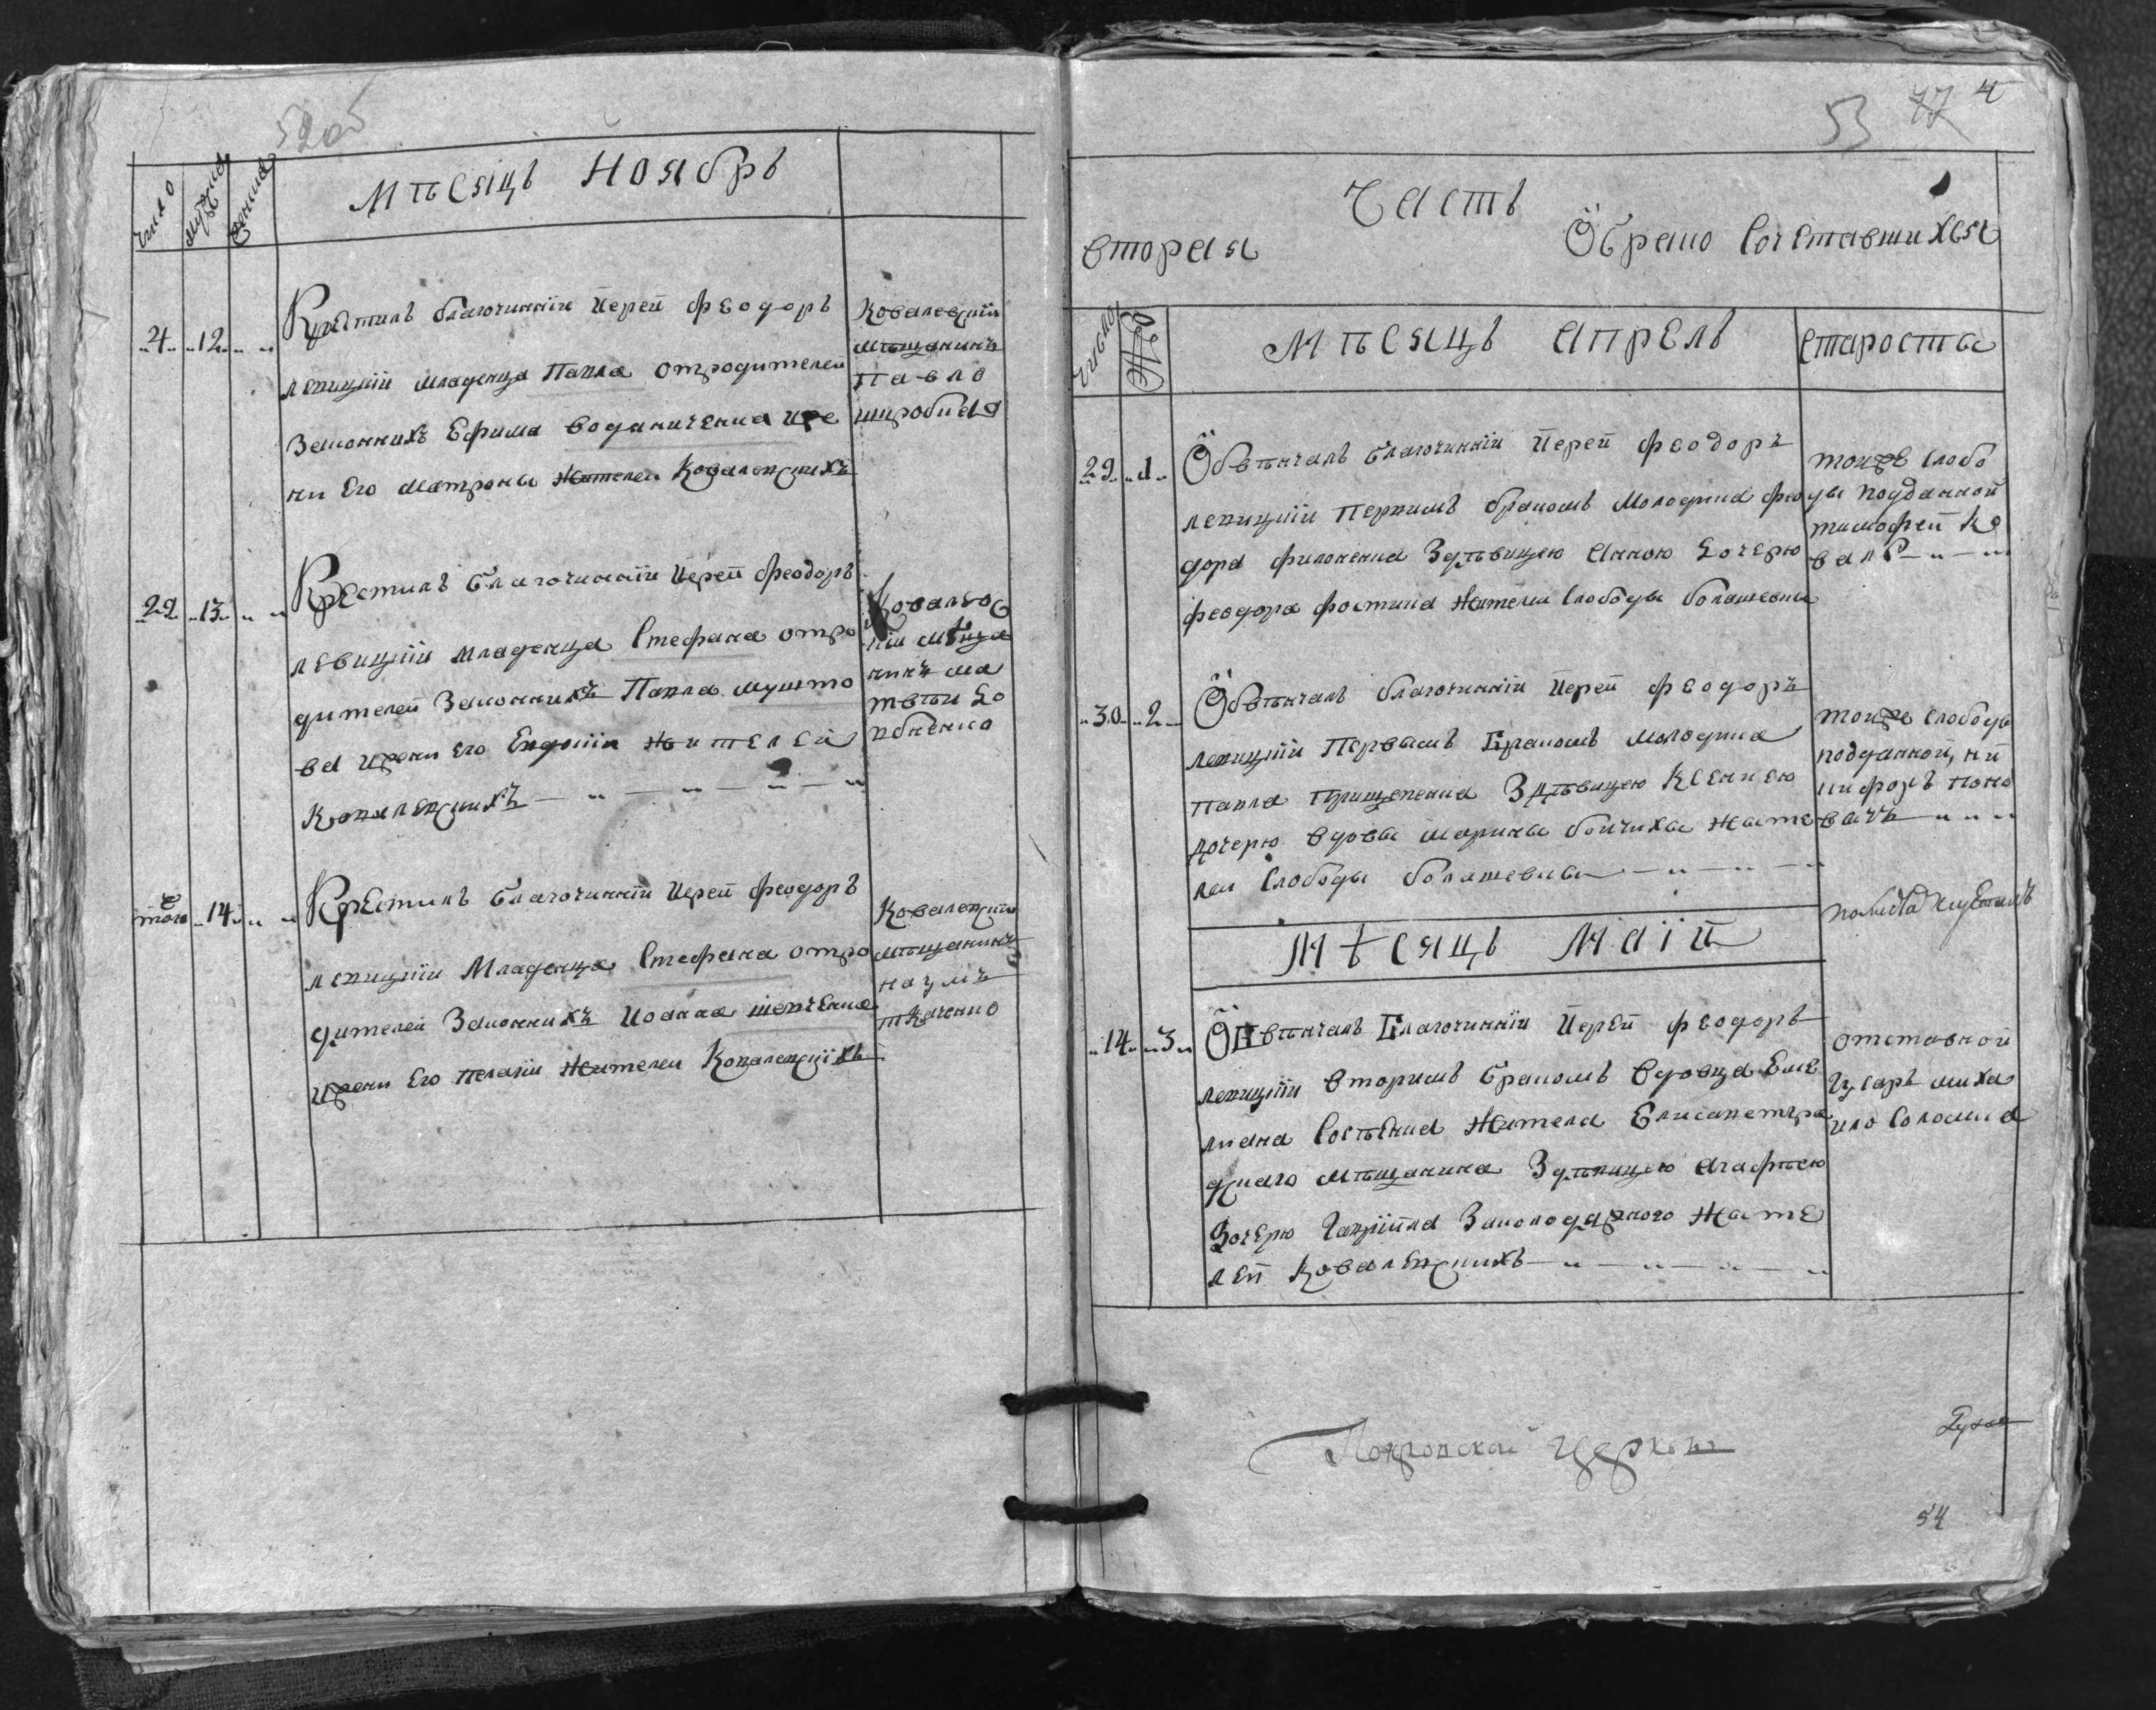 52об
число
мужеска
женска
Мѣсяцъ Ноябрь
4 12
Крестилъ благочинній Іерей Феодоръ
левицкій младенца Павла отродителей
Законнихъ Ефима водяниченка ижe
ни Его Матроны Жителей Ковалевскихъ
Ковалевскій
мѣщанинъ
Павло
22 13
Крестилъ благочинній Іерей Феодоръ
левицкій младенца Стефана отро
дителей Законнихъ Павла
ва ижени Его Евдокіи Жителей
Ковалевскихъ
Ковалевс
кій мѣща
нинъ ма
твѣй
того 14
Крестилъ благочинній Іерей Феодоръ
левицкій Младенца Стефана отро
дителей Законнихъ Иоанна шевченка
ижени Его Пелагіи Жителей Ковалевскихъ
Ковалевскій
мѣщанинъ
наумъ
ткаченко
53 77 4
Часть
вторая Обрако Сочетавшихся
число
Мѣсяцъ Апрель
старосты
29 1
Обвѣнчалъ благочинній Іерей Феодоръ
левицкій Первимъ бракомъ Молодика Фео
дора филоненка Здѣвицею Анною дочерю
феодора фостика Жителей Слободы болашевки
тоиже слобо
ды подданной
тимофей Ко
валь
30 2
Обвѣнчалъ благочинній Іерей Феодоръ
левицкій Первымъ Бракомъ молодика
Павла Прищепенка Здѣвицею Ксениею
дочерю вдовы Марины бойчихи Жите
лей Слободы болашевки
тоиже слободы
подданной, ни
кифоръ
Мѣсяцъ Маій
14 3
Обвѣнчалъ Благочинній Іерей Феодоръ
левицкій вторимъ бракомъ вдовца Еме
лиана Костенка Жителя Елисаветгра
дскаго мѣщанина Здѣвицею Агафіею
Дочерю Гавріила Жите
лей Ковалевскихъ
отставной
Гусаръ миха
ило Соломка
Покровской Церкви
54